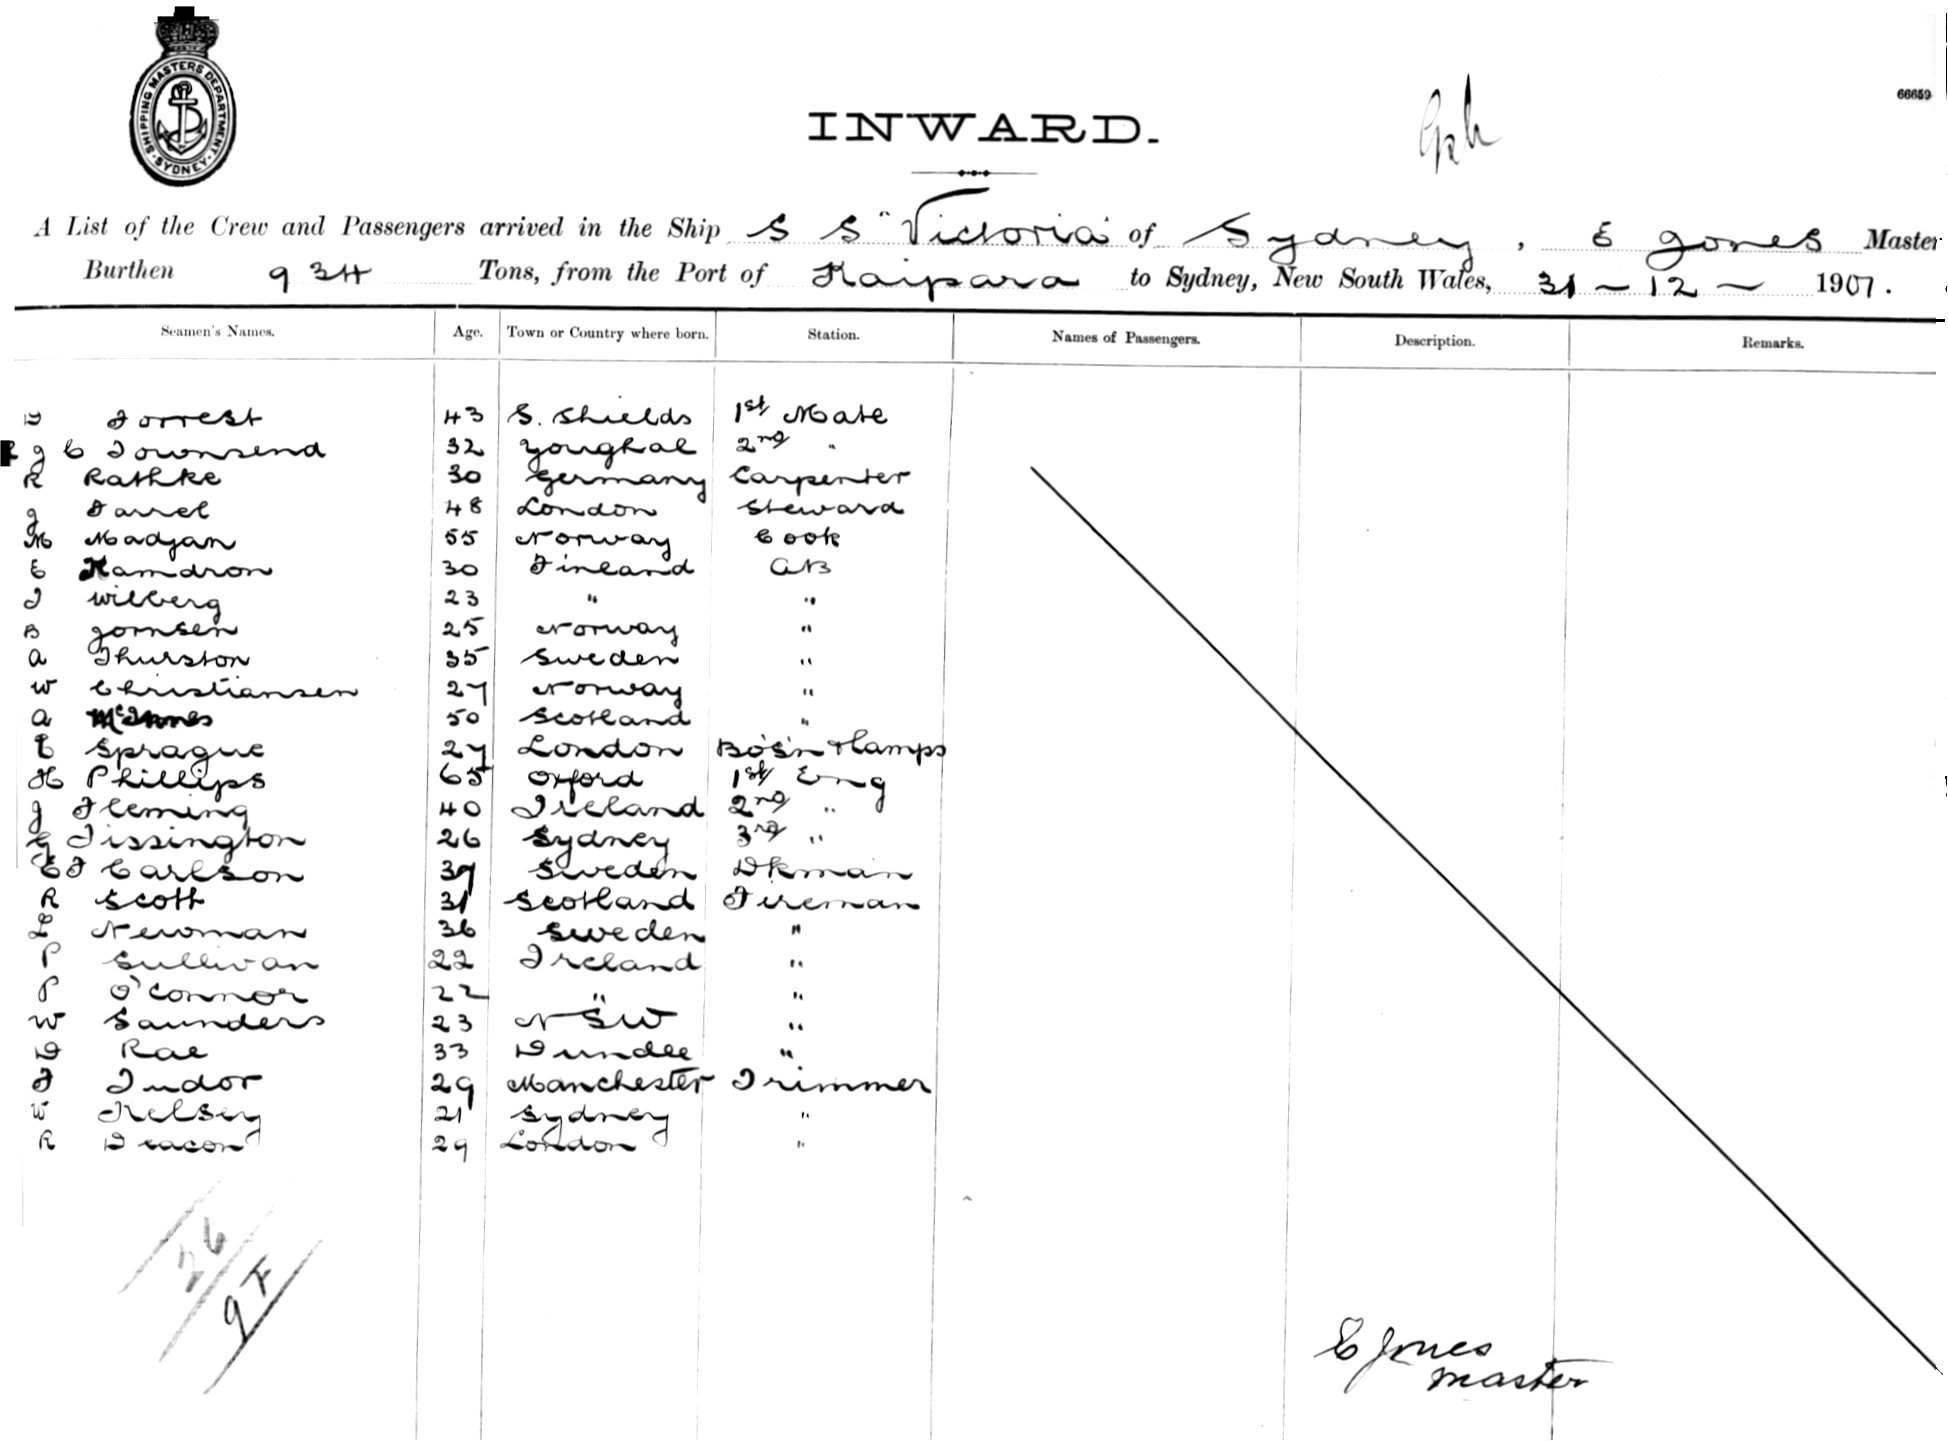 SHIPPING MASTERS DEPARTMENT
SYDNEY
66659
INWARD.
A List of the Crew and Passengers arrived in the Ship S S "Victoria" of Sydney, E Jones Master
Burthen 934 Tons, from the Port of Kaipara to Sydney, New South Wales, 31 - 12 - 1907.
Seamen's Names. Age. Town or Country where born. Station. Names of Passengers. Description. Remarks.
D Forrest 43 S. Shields 1st Mate
J C Townsend 32 Youghal 2nd "
R Rathke 30 Germany Carpenter
J Farrel 48 London Steward
M Madjan 55 Norway Cook
E Hamdron 30 Finland AB
J Wilberg 23 " "
B Jornsen 25 Norway "
A Thurston 35 Sweden "
W Christiansen 27 Norway "
A McInnes 50 Scotland "
E Sprague 27 London Bo's'n & Lamps
H Phillips 65 Oxford 1st Eng
J Fleming 40 Ireland 2nd "
G Tissington 26 Sydney 3rd "
E F Carlson 39 Sweden Dkman
R Scott 31 Scotland Fireman
L Newman 36 Sweden "
P Sullivan 22 Ireland "
P O'Connor 22 " "
W Saunders 23 NSW "
D Rae 33 Dundee "
F Tudor 29 Manchester Trimmer
W Kelsey 21 Sydney "
R Deacon 29 London "
26
E Jones
Master